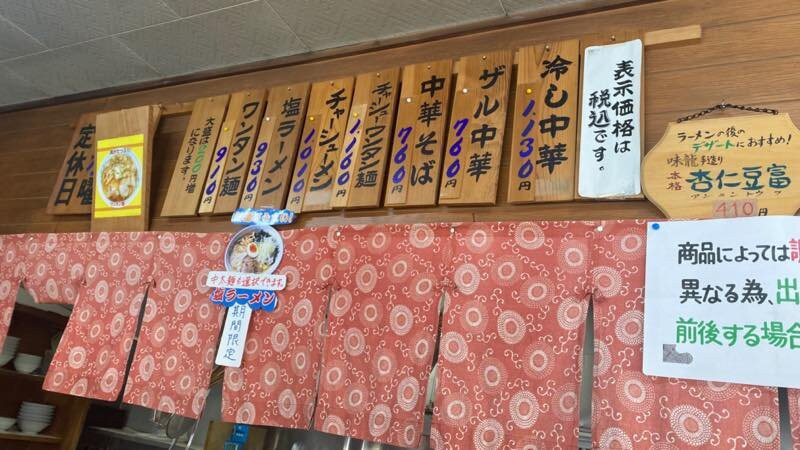 冷し中華
1,130円
ザル中華
760円
中華そば
760円
チャーシューワンタン麺
1,160円
チャーシューメン
1010円
塩ラーメン
930円
ワンタン麺
910円
大盛は200円増
になります。
定休日
表示価格は
税込です。
ラーメンの後の
デザートにおすすめ!
味龍手造り
本格 杏仁豆富
アンニンドウフ
410円
商品によっては
異なる為、出
前後する場合
中太麺も選択できます。
塩ラーメン
期間限定